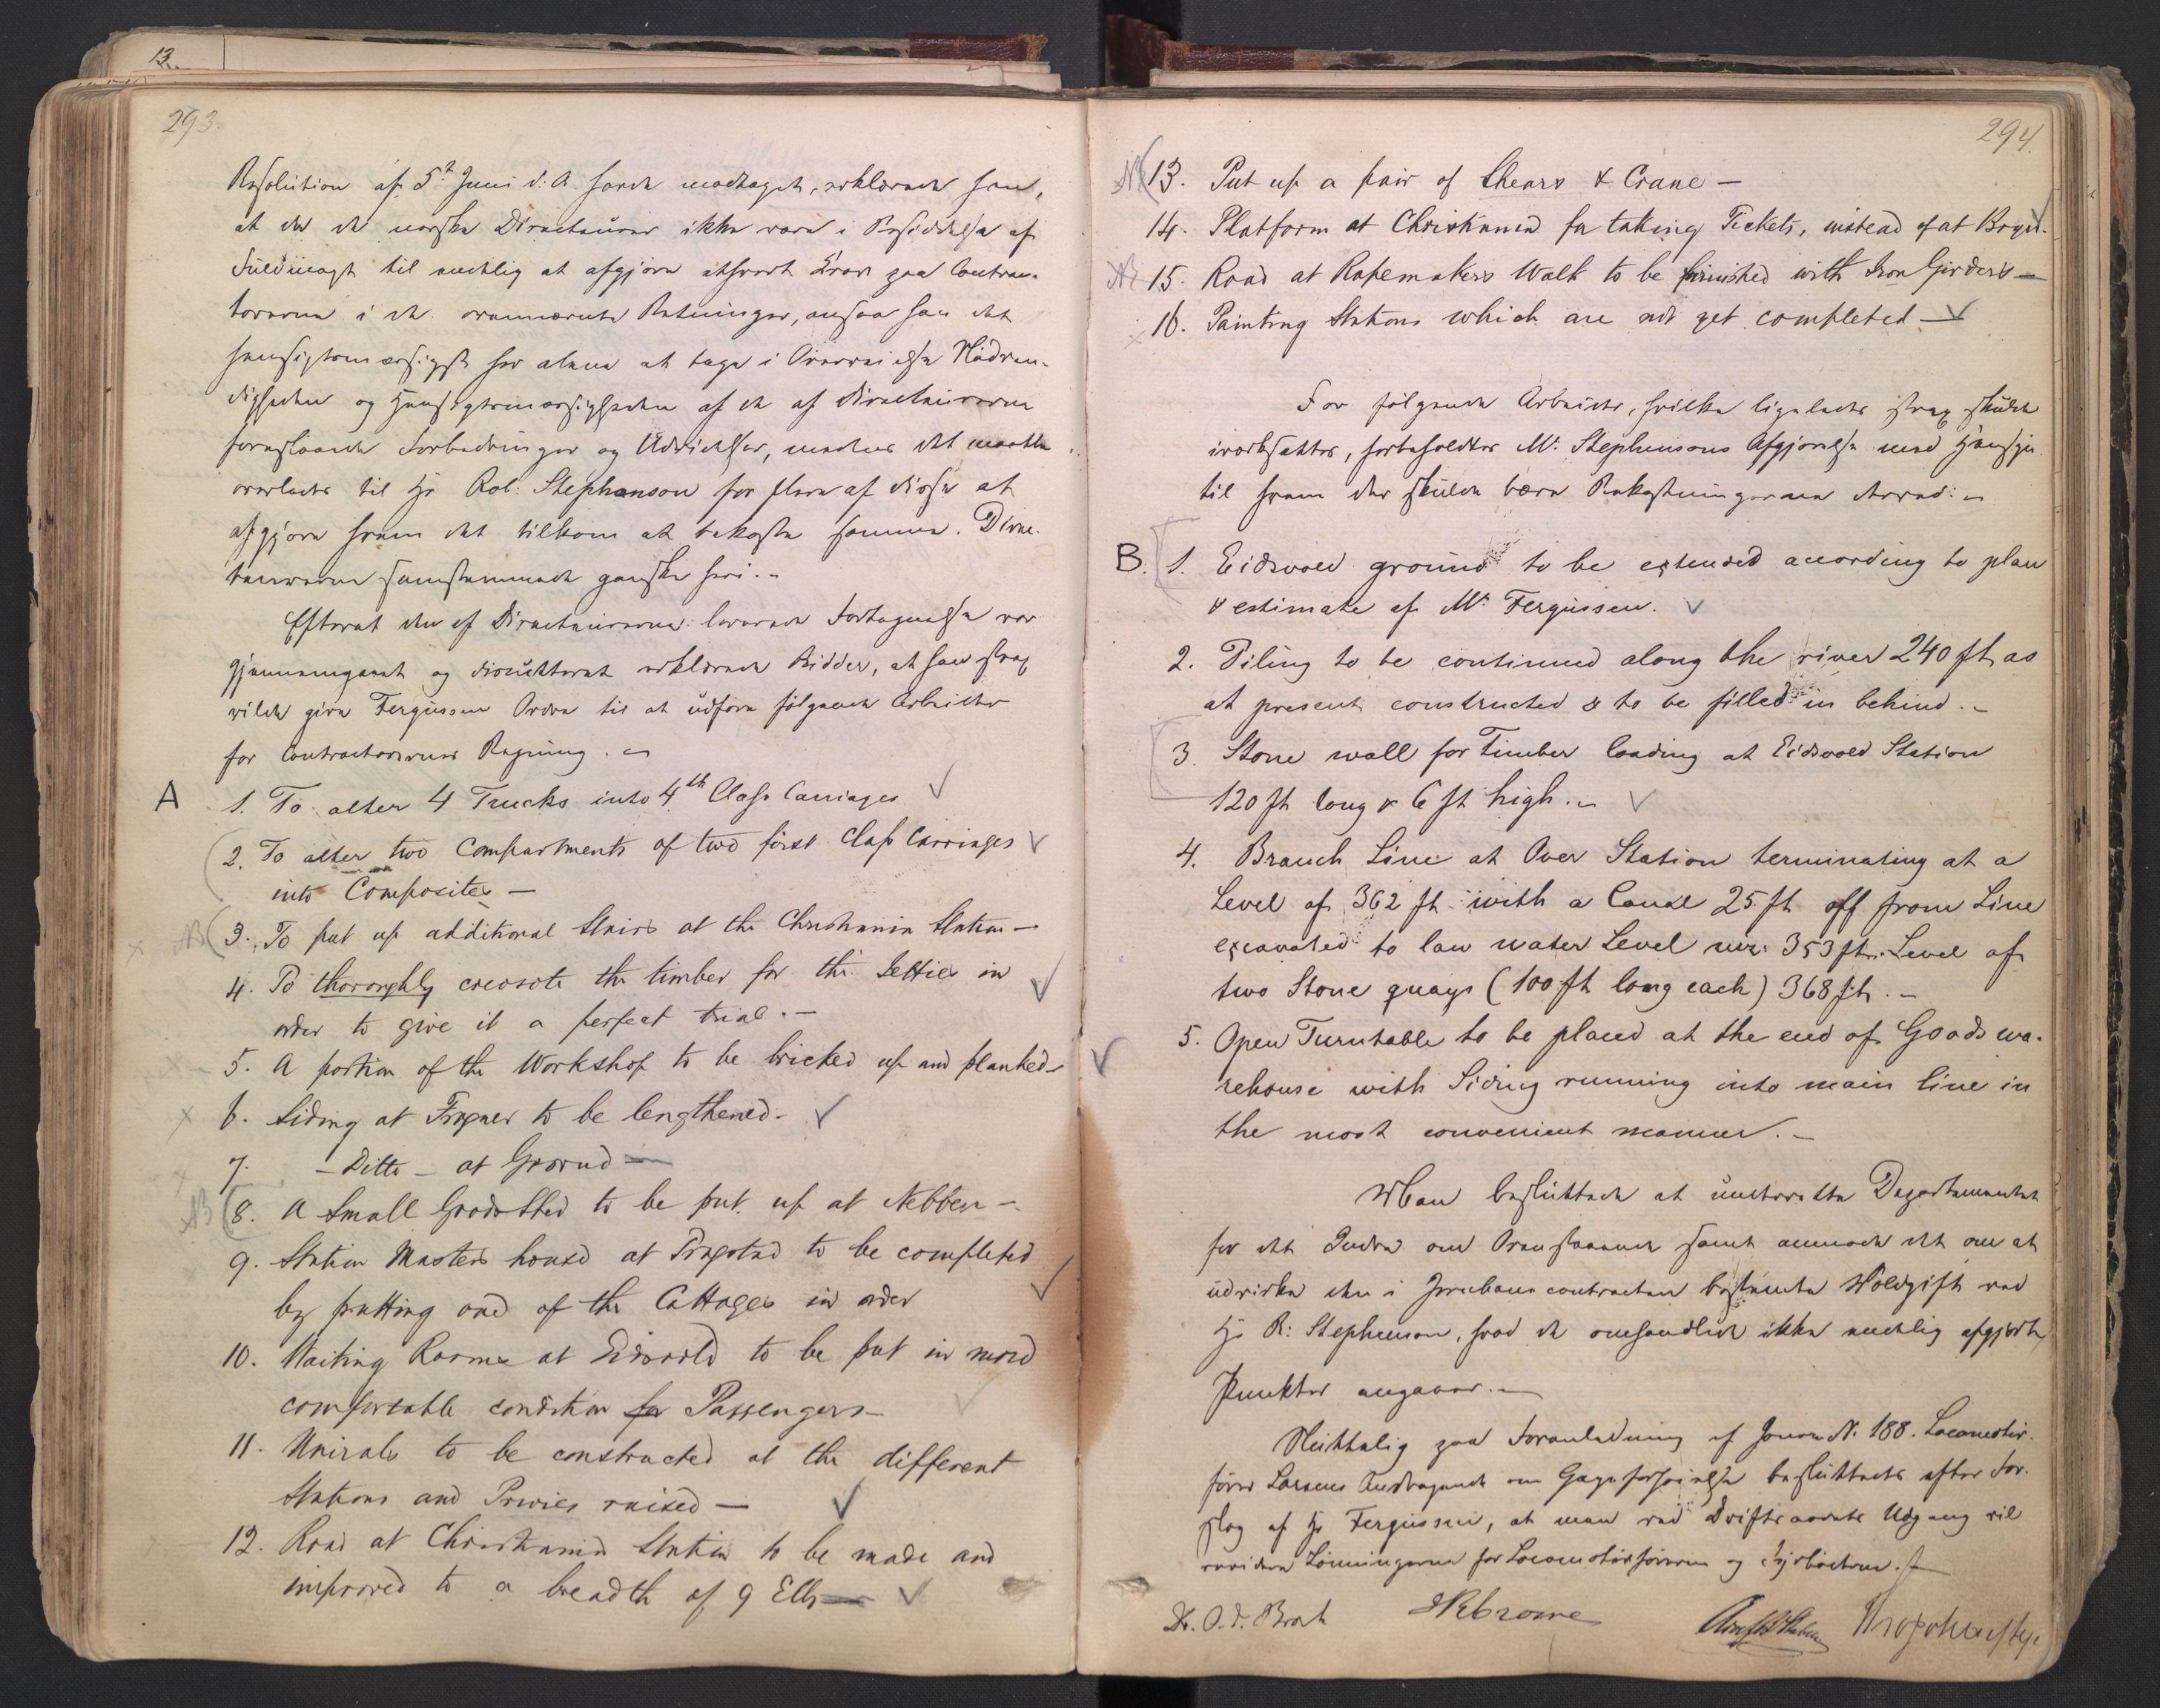 13.
293.
Resolution af 5t Juni d: A. havde modtaget, erklærede han,
at da de norske Directeurer ikke vare i Besiddelse af
Fuldmagt til endelig at afgjøre ethvert Krav paa Contrac-
torerne i de ovennævnte Retninger, ansaa han det
hensigtsmæssigst her alene at tage i Overveielse Nødven-
digheden og Hensigtsmæssigheden af de af Directeurerne
foreslaaede Forbedringer og Udvidelser, medens det maatte
overlades til Hr Rob: Stephenson for flere af disse at
afgjøre hvem det tilkom at bekoste samme. Direc-
teurerne samstemmede ganske heri.-
Efterat den af Directeurerne leverede Fortegnelse var
gjennemgaaet og discutteret erklærede Bidder, at han strax
vilde give Fergussen Ordre til at udføre følgende Arbeider
for Contractorernes Regning.
A 1. To alter 4 Trucks into 4th Class Carriages ✓
2. To alter two Compartments of two first Class Carriages ✓
into Composites —
x NB 3. To put up additional Stairs at the Christiania Station —
4. To thoroughly creosote the timber for the Jetties in ✓
order to give it a perfect trial. —
5. A portion of the Workshop to be bricked up and planked ✓
x 6. Siding at Frogner to be lengthened. ✓
7. — Ditto — at Grorud —
NB 8. A Small Goods Shed to be put up at Nebben —
9. Station Masters house at Trøgstad to be completed
by putting one of the Cottages in order ✓
10. Waiting Rooms at Eidsvold to be put in more
comfortable condition for Passengers — ✓
11. Urinals to be constructed at the different
Stations and Privies raised — ✓
12. Road at Christiania Station to be made and
improved to a breadth of 9 Ells — ✓
294.
NB 13. Put up a pair of Shears & Crane —
14. Platform at Christiania for taking Tickets, instead of at Bryn. ✓
NB 15. Road at Ropemakers Walk to be finished with Iron Girders —
x 16. Painting Stations which are not yet completed — ✓
For følgende Arbeider, hvilke ligeledes strax skulde
iværksættes, forbeholdtes Mr. Stephensons Afgjørelse med Hensyn
til hvem der skulde bære Bekostningerne derved:
B. 1. Eidsvold ground to be extended according to plan
& estimate of Mr. Fergussen. ✓
2. Piling to be continued along the river 240 ft, as
at present constructed & to be filled in behind. —
3. Stone wall for Timber loading at Eidsvold Station
120 ft long & 6 ft high. — ✓
4. Branch Line at Oier Station terminating at a
Level of 362 ft with a Canal 25 ft off from Line
excavated to low water Level viz: 353 ft. Level of
two Stone quays (100 ft long each) 368 ft. —
5. Open Turntable to be placed at the end of Goods wa-
rehouse with Siding running into main line in
the most convenient manner. —
Man besluttede at underrette Departementet
for det Indre om Ovenstaaende samt anmode det om at
udvirke den i Jernbanecontracten bestemte Voldgift ved
Hr R: Stephenson, hvad de omhandlede ikke endelig afgjorte
Punkter angaaer. —
Sluttelig paa Foranledning af Journ No. 188. Locomotiv-
fører Larsens Andragende om Gageforhøielse besluttedes efter For-
slag af Hr Fergussen, at man ved Driftsaarets Udgang vil
revidere Lønningerne for Locomotivførerne og Fyrbøderne.
Dr. O. J. Broch